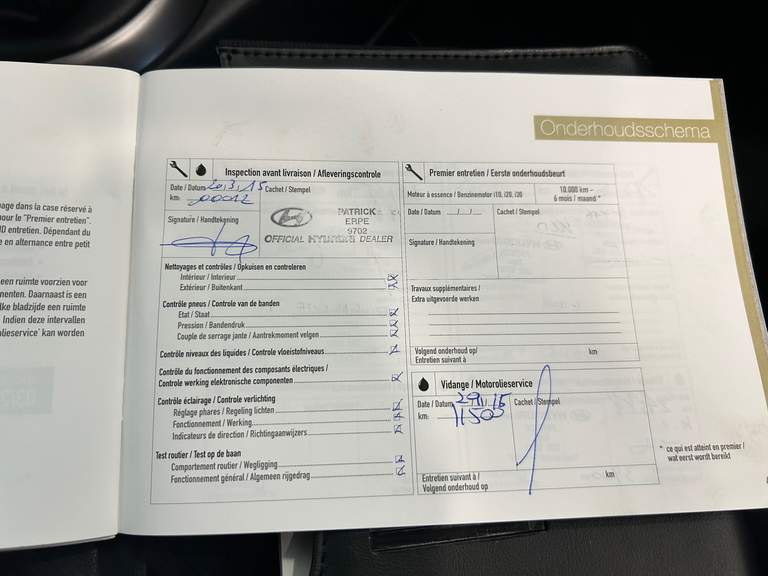 age dans la case réservé à
our le "Premier entretien".
D entretien. Dépendant du
e en alternance entre petit
een ruimte voorzien voor
nenten. Daarnaast is een
lke bladzijde een ruimte
Indien deze intervallen
olieservice' kan worden
Onderhoudsschema
Inspection avant livraison / Afleveringscontrole
Date / Datum 20.3.15 Cachet / Stempel
km: 00012
Signature / Handtekening
PATRICK
ERPE
9702
OFFICIAL HYUNDAI DEALER
Nettoyages et contrôles / Opkuisen en controleren
Intérieur / Interieur
Extérieur / Buitenkant
Contrôle pneus / Controle van de banden
Etat / Staat
Pression / Bandendruk
Couple de serrage jante / Aantrekmoment velgen
Contrôle niveaux des liquides / Controle vloeistofniveaus
Contrôle du fonctionnement des composants électriques /
Controle werking elektronische componenten
Contrôle éclairage / Controle verlichting
Réglage phares / Regeling lichten
Fonctionnement / Werking
Indicateurs de direction / Richtingaanwijzers
Test routier / Test op de baan
Comportement routier / Wegligging
Fonctionnement général / Algemeen rijgedrag
Premier entretien / Eerste onderhoudsbeurt
Moteur à essence / Benzinemotor i10, i20, i30
10.000 km –
6 mois / maand *
Date / Datum / / Cachet / Stempel
Signature / Handtekening
Travaux supplémentaires /
Extra uitgevoerde werken
Volgend onderhoud op/
Entretien suivant à km
Vidange / Motorolieservice
Date / Datum Cachet / Stempel
km: 11505
Entretien suivant à /
Volgend onderhoud op km
* ce qui est atteint en premier /
wat eerst wordt bereikt